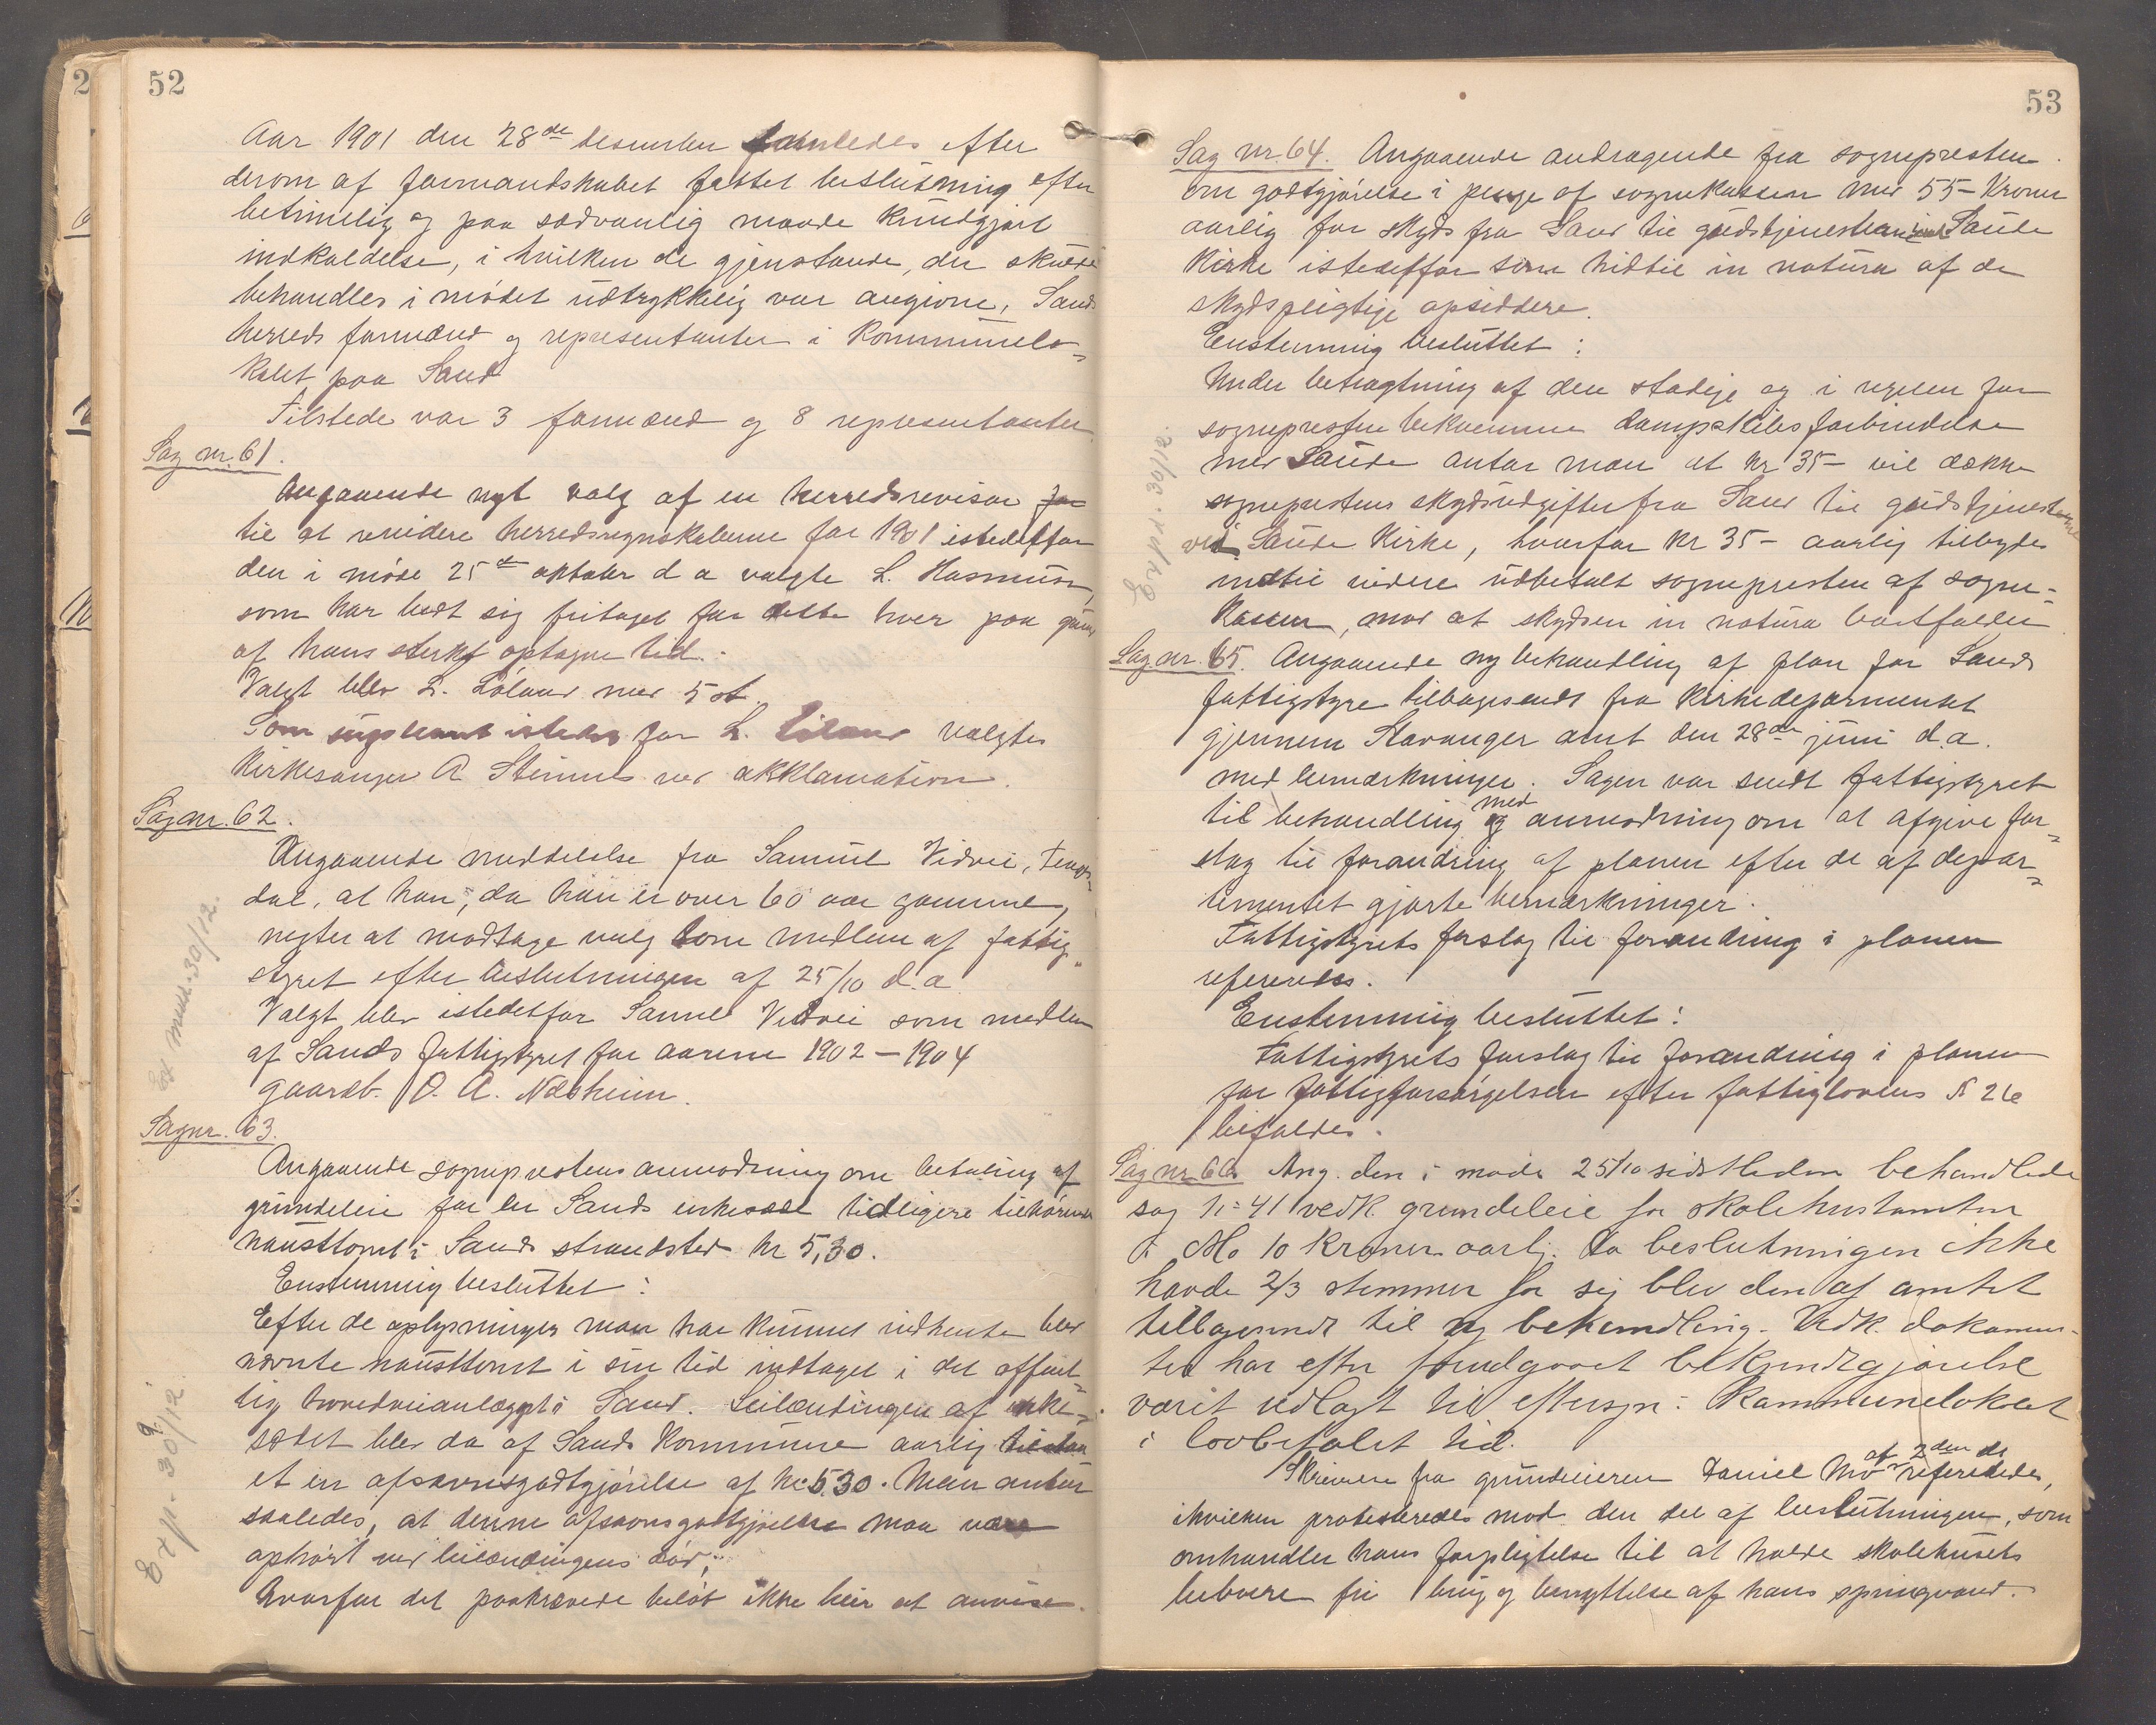 52
Aar 1901 den 28de desember samledes efter
derom af formandskabet fattet beslutning efter
betimelig og paa sædvanlig maade kundgjort
indkaldelse, i hvilken de gjenstande, der skulde
behandles i mødet udtrykkelig var angivne, Sands
herreds formænd og representanter i kommunelo-
kalet paa Sand
Tilstede var 3 formænd og 8 representanter
Sag nr. 61.
Angaaende nyt valg af en herredsrevisor for
til at revidere herredsregnskaberne for 1901 istedetfor
den i møde 25de oktober d a valgte L. Rasmusen,
som har bedt sig fritaget for dette hver paa grund
af hans sterkt optagne tid.
Valgt blev L. Løland med 5 st.
Som supleant istedet for L. Løland valgtes
Kirkesanger A Steinnes ved akklamation.
Sag nr. 62.
Angaaende meddelelse fra Samuel Vidvei,
dal, at han, da han er over 60 aar gammel,
negter at modtage valg som medlem af fattig-
styret efter beslutningen af 25/10 d. a
Valgt blev istedetfor Samuel Vidvei som medlem
af Sands fattigstyret for aarene 1902 – 1904
gaardb. O. A. Næsheim.
Ex 30/12.
Sag nr. 63.
Angaaende sogneprestens anmodning om betaling af
grundeleie for en Sands enkesæde tidligere tilhørende
nausttomt i Sands strandsted kr 5,30.
Enstemmig besluttet:
Efter de oplysninger man har kunnet indhente blev
nævnte nausttomt i sin tid indtaget i det offent-
lig hovedveianlægget i Sand. Leilændingen af enke-
sædet blev da af Sands kommune aarlig tilstaa
et en afsavnsgodtgjørelse af kr 5.30. Man antar
saaledes, at denne afsavnsgodtgjørelse maa være
ophørt ved leilændingens død,
hvorfor det paakrævede beløb ikke bliv at anvise.
Exp. 30/12.
53
Sag nr. 64. Angaaende andragende fra sognepresten
om godtgjørelse i penge af sognekassen med 55 – Kroner
aarlig for skyds fra Sand til gudstjenesterne ved Saude
Kirke istedetfor som hidtil in natura af de
skydspligtige opsiddere.
Enstemmig besluttet:
Under betragtning af den stadige og i regelen for
sognepresten bekvemme dampskibsforbindelse
med Saude antar man at kr 35 – vil dække
sogneprestens skydsudgifter fra Sand til gudstjenesterne
ved Saude Kirke, hvorfor kr 35 – aarlig tilbydes
indtil videre udbetalt sognepresten af sogne-
kassen, mod at skydsen in natura bortfalder
Expd. 30/12.
Sag nr. 65. Angaaende ny behandling af plan for Sands
fattigstyre tilbagesendt fra Kirkedeparmentet
gjennem Stavanger amt den 28de juni d.a.
med bemærkninger. Sagen var sendt fattigstyret
til behandling og med anmodning om at afgive for-
slag til forandring af planen efter de af depar-
tementet gjorte bemærkninger.
Fattigstyrets forslag til forandring i planen
refereredes.
Enstemmig besluttet:
Fattigstyrets forslag til forandring i planen
for fattigforsørgelsen efter fattiglovens § 26
bifaldes.
Sag nr 66. Ang. den i møde 25/10 sidstleden behandlede
sag n= 41 vedk. grundeleie for skolehustomten
Mo 10 kroner aarlig. Da beslutningen ikke
havde 2/3 stemmer for sig blev den af amtet
tilbagesendt til ny behandling. Vedk. dokumen-
ter har efter forudgaaet bekjendtgjørelse
værit udlagt til eftersyn i kommunelokalet
i lovbefalet tid.
Skrivere fra grundeieren Daniel Mo af 2den ds refereredes,
ihvilken protesteredes mod den del af beslutningen, som
omhandler hans forpligtelse til at holde skolehusets
beboere fri brug og benyttelse af hans springvand.